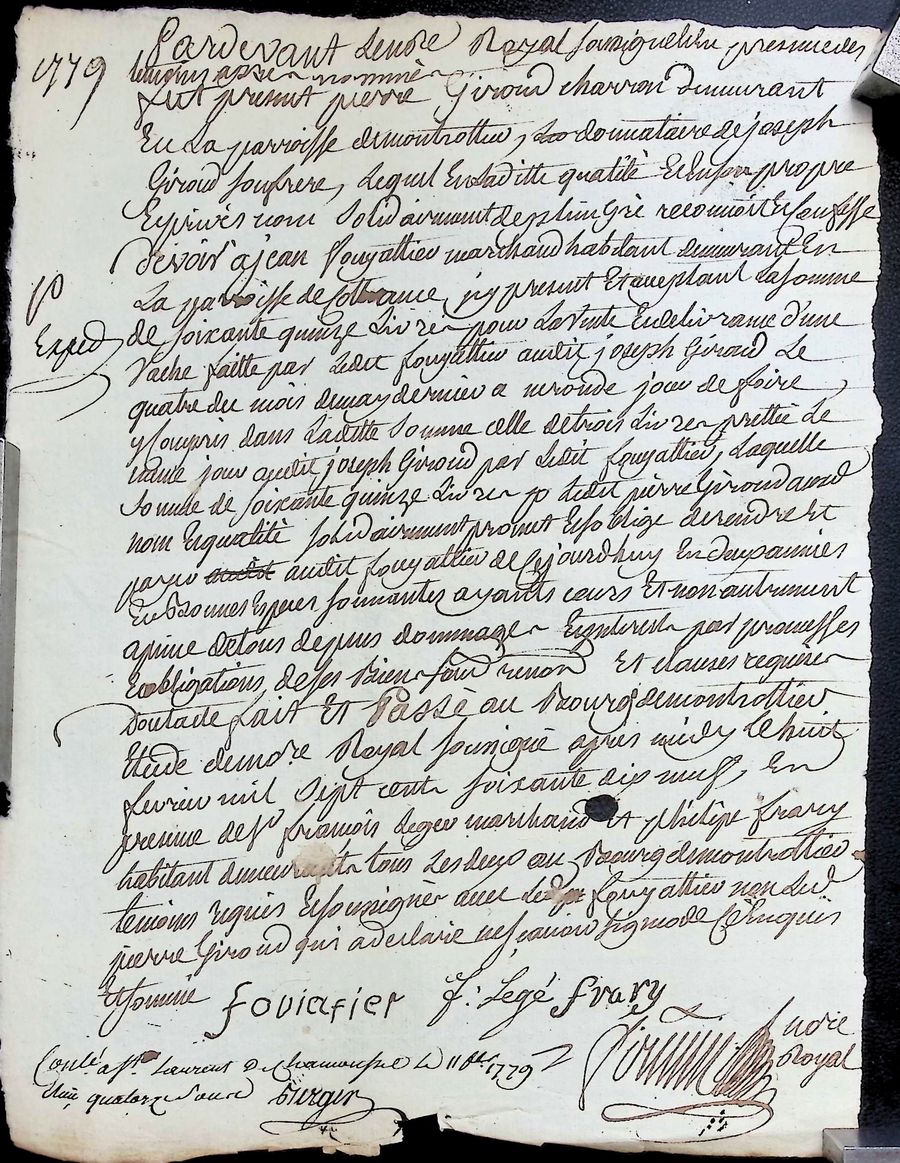 1779
Pardevant Lenore Royal soussigné en presence des
temoins apres nommés
fut present pierre Giroud charron demeurant
En La parroisse demontrottier, donnataire de joseph
Giroud son frere, Lequel En Laditte qualité Et En son propre
Et privés nom solidairement de son Gré reconnoit Et Confesse
devoir a jean fouyattier marchand habitant demeurant En
La parroisse de , jcy present Et aceptant La somme
Exped
de soixante quinze Livres pour La vente En delivrance d'une
Vache faitte par Ledit fouyattier audit joseph Giroud Le
quatre du mois demay dernier a jour de foire
y Compris dans Laditte Somme celle de trois Livres prettée Le
meme jour audit joseph Giroud par Ledit fouyattier, Laquelle
Somme de soixante quinze Livres Ledit pierre Giroud aud
nom Et qualité solidairement promet Et soblige de rendre Et
payer audit audit fouyattier de Cejourdhuy En
En Bonnes Especes sonnantes ayants cours Et non autrement
a peine de tous depens dommages Et interets par promesses
Et obligations, de ses Biens renon Et clauses requises
Dont acte fait Et Passé au Bourg demontrottier
Etude de nore Royal soussigné apres midy le huit
fevrier mil sept cent soixante dix neuf, En
presence de sr françois Leger marchand Et philipe frary
habitant demeurants tous Les deux au Bourg demontrottier
temoins requis Et soussignés avec Led fouyattier non Led
pierre Giroud qui a declaré ne sçavoir signer de Ce Enquis
Et sommé
foviatier f: Legé frary
nore
Royal
Conlé a st Laurent De Chamousset Le 11 1779
quatorze sous